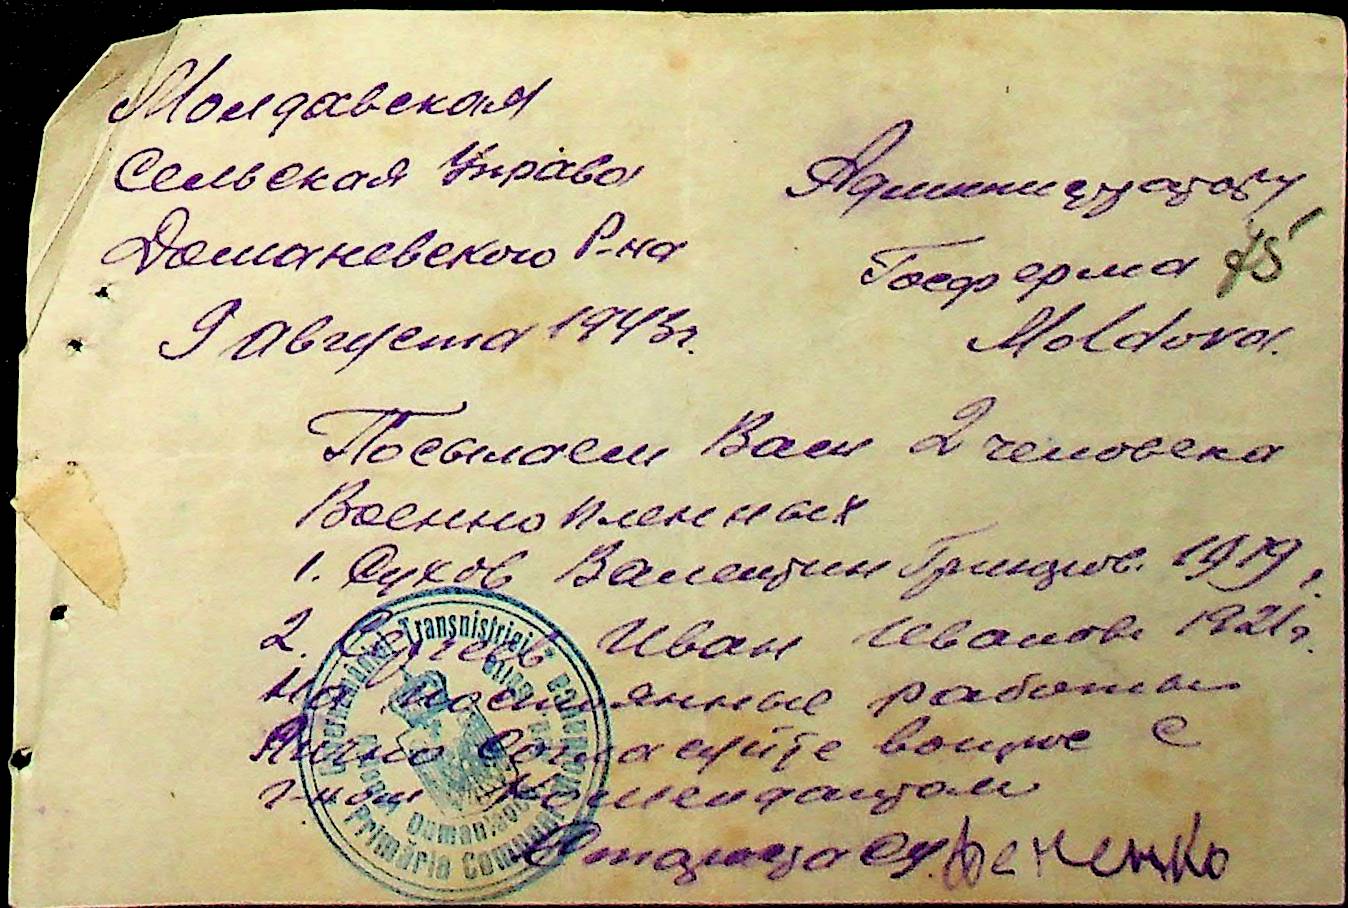 Молдавская
Сельская Управа
Доманевского Р-на
9 Августа 1943г.
Администратору
Госферма 75
Moldova.
Посылаем Вам 2 человека
Военно пленных
1. Сухов Валентин 1919г.
2. Сергеев Иван Иванов. 1921г.
на постоянные работы
Лично согласуйте вопрос с
г-ном Комендантом
Старшта
Guvernământul Transnistriei
Primăria Comunei